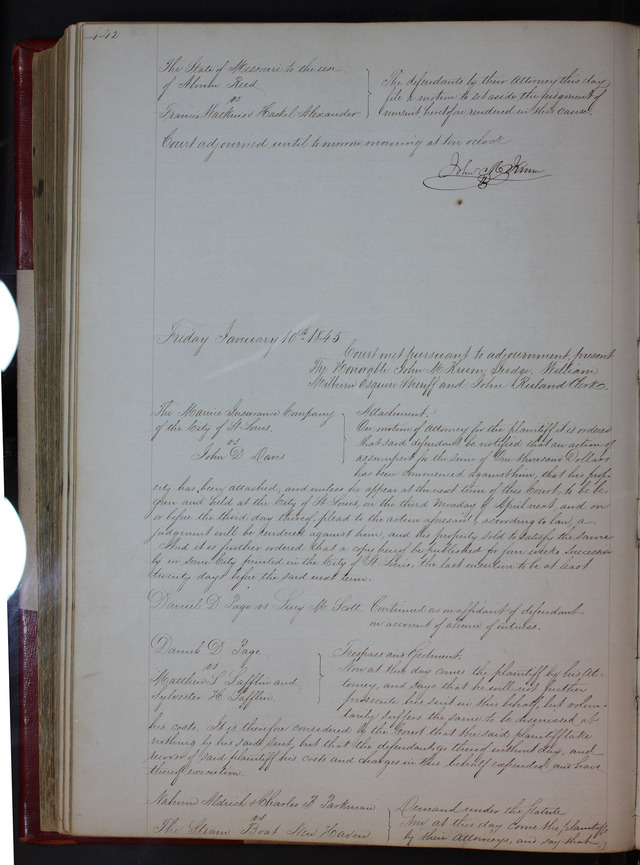 442
The State of Missouri to the use
of Almin Reed
vs
Francis Mackensos Haskel Alexander
The defendants by their Attorney this day
file a motion to set aside the judgment of
nonsuit heretofore rendered in this cause.
Court adjourned until tomorrow morning at ten oclock
John M Krum
Friday January 10th 1845
Court met pursuant to adjournment, present
The Honorable John M Krum, Judge, William
Milburn Esquire Sheriff and John Ruland Clerk.
The Marine Insurance Company
of the City of St Louis.
vs
John D Davis
Attachment.
On motion of Attorney for the plaintiff it is ordered
that said defendant be notified that an action of
assumpsit for the sum of One thousand Dollars
has been commenced against him, that his prop-
erty has been attached, and unless he appear at the next term of this Court, to be be-
gun and held at the City of St Louis, on the third Monday of April next and on
or before the third day thereof, plead to the action aforesaid, according to law, a
judgment will be rendered against him, and his property sold to satisfy the same
And it is further ordered that a copy hereof be published for four weeks successive
ly in some City printed in the City of St Louis, the last insertion to be at least
twenty days before the said next term.
Daniel D Page vs Lucy M Scott. Continued as on affidavit of defendant
on account of absence of witness.
Daniel D Page
vs
Matthew L Lafflin and
Sylvester H Lafflin.
Trespass and Ejectment.
Now at this day comes the plaintiff by his At-
torney, and says that he will not further
prosecute his suit in this behalf, but volun-
tarily suffers the same to be dismissed at
his costs. It is therefore considered by the Court that the said plaintiff take
nothing by his said suit, but that the defendants go thereof without day, and
recover of said plaintiff his costs and charges in this behalf expended and have
thereof execution.
Nahum Aldrich & Charles B Parkman
vs
The Steam Boat New Haven
Demand under the Statute
Now at this day come the plaintiffs
by their Attorneys, and say that